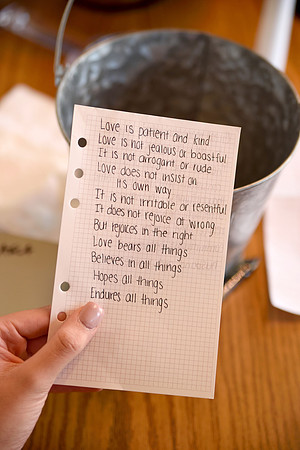 Love is patient and kind
Love is not jealous or boastful
It is not arrogant or rude
Love does not insist on
its own way
It is not irritable or resentful
It does not rejoice at wrong
But rejoices in the right
Love bears all things
Believes in all things
Hopes all things
Endures all things